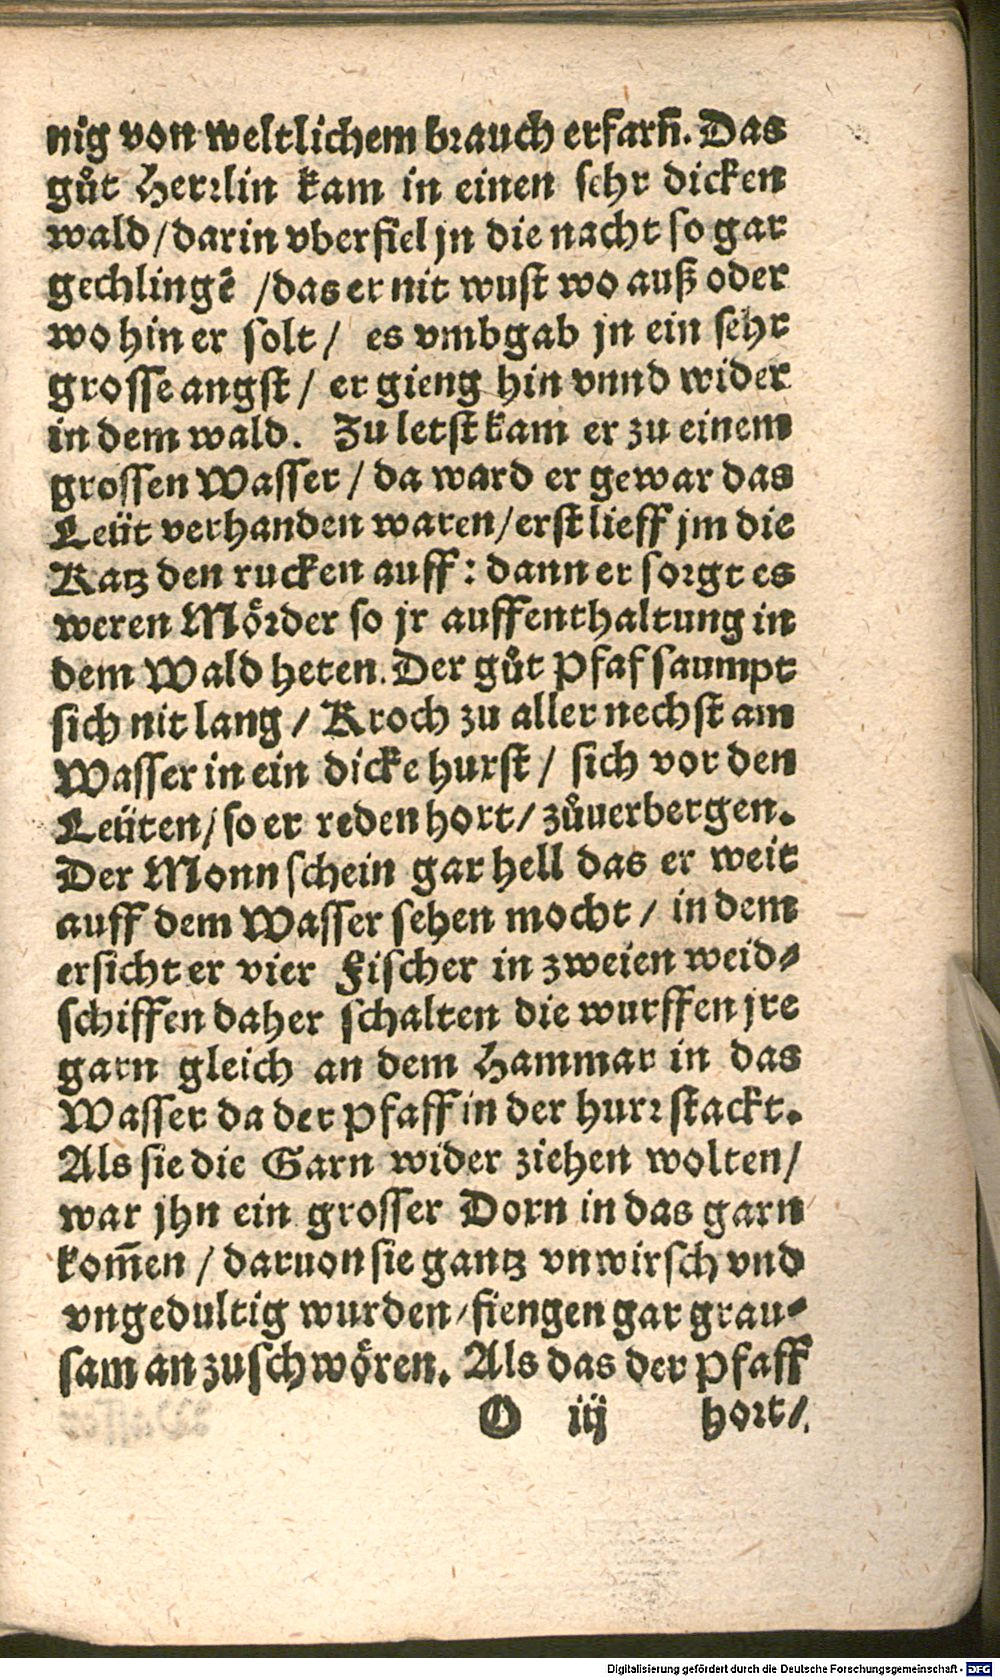 nig von weltlichem brauch erfarn̄. Das
gůt Herrlin kam in einen sehr dicken
wald / darin vberfiel jn die nacht so gar
gechlingē / das er nit wust wo auß oder
wo hin er solt / es vmbgab jn ein sehr
grosse angst / er gieng hin vnnd wider
in dem wald. Zu letst kam er zu einem
grossen Wasser / da ward er gewar das
Leüt verhanden waren / erst lieff jm die
Katz den rucken auff : dann er sorgt es
weren Mörder so jr auffenthaltung in
dem Wald heten. Der gůt Pfaf saumpt
sich nit lang / Kroch zu aller nechst am
Wasser in ein dicke hurst / sich vor den
Leüten / so er reden hort / zůuerbergen.
Der Monn schein gar hell das er weit
auff dem Wasser sehen mocht / in dem
ersicht er vier Fischer in zweien weid⸗
schiffen daher schalten die wurffen jre
garn gleich an dem Hammar in das
Wasser da der Pfaff in der hurr stackt.
Als sie die Garn wider ziehen wolten /
war jhn ein grosser Dorn in das garn
kom̄en / daruon sie gantz vnwirsch vnd
vngedultig wurden / fiengen gar grau⸗
sam an zuschwören. Als das der Pfaff
O iij hort /
Digitalisierung gefördert durch die Deutsche Forschungsgemeinschaft - DFG